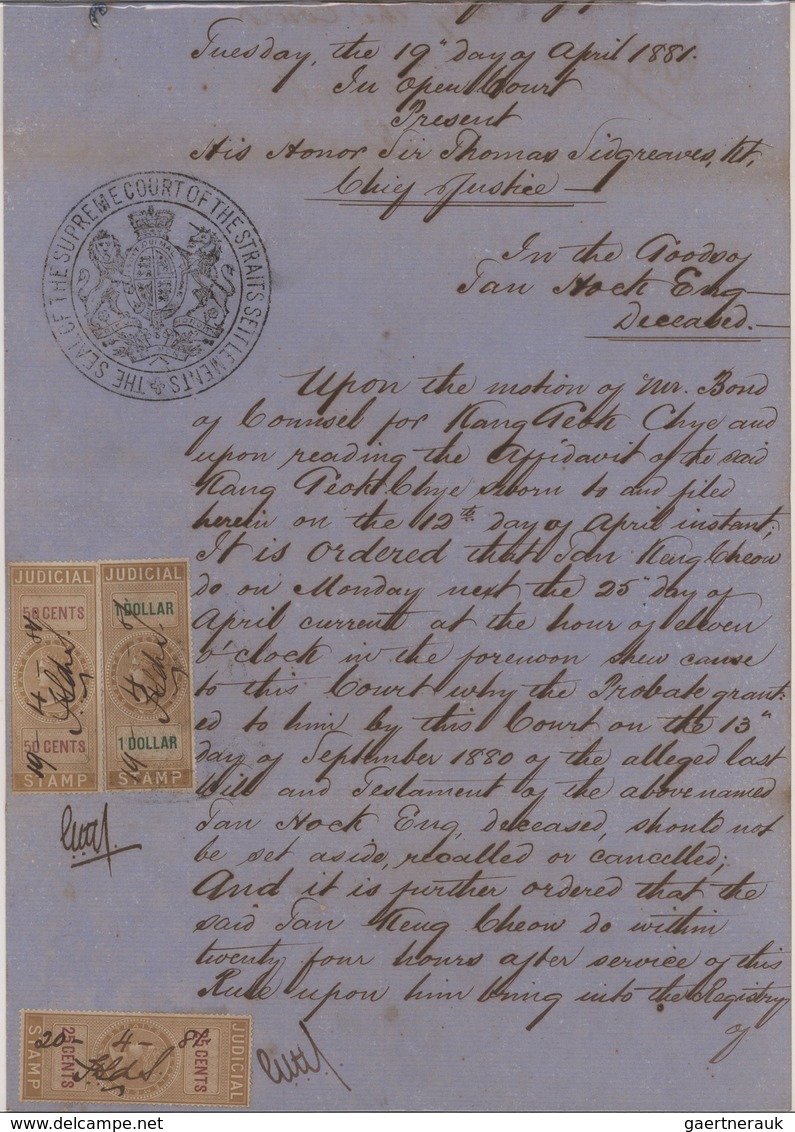 Tuesday, the 19" day of April 1881.
In Open Court
Present
His Honor Sir Thomas Sidgreaves, Kt,
Chief Justice
THE SEAL OF THE SUPREME COURT OF THE STRAITS SETTLEMENTS
In the Goods of
Tan Hock Eng
Deceased.
Upon the motion of Mr. Bond
of Counsel for Kang Geok Chye and
upon reading the Affidavit of the said
Kang Geok Chye sworn to and filed
herein on the 12th day of April instant;
It is ordered that Tan Keng Cheow
do on Monday next the 25" day of
April current at the hour of eleven
o'clock in the forenoon shew cause
to this Court why the Probate grant:
ed to him by this Court on the 13"
day of September 1880 of the alleged last
Will and Testament of the abovenamed
Tan Hock Eng, deceased, should not
be set aside, recalled or cancelled;
And it is further ordered that the
said Tan Keng Cheow do within
twenty four hours after service of this
Rule upon him bring into the Registry
of
JUDICIAL
50 CENTS
19-4-81
50 CENTS
STAMP
JUDICIAL
1 DOLLAR
19-4-81
1 DOLLAR
STAMP
JUDICIAL
25 CENTS
20-4-81
25 CENTS
STAMP
delcampe.net
gaertnerauk